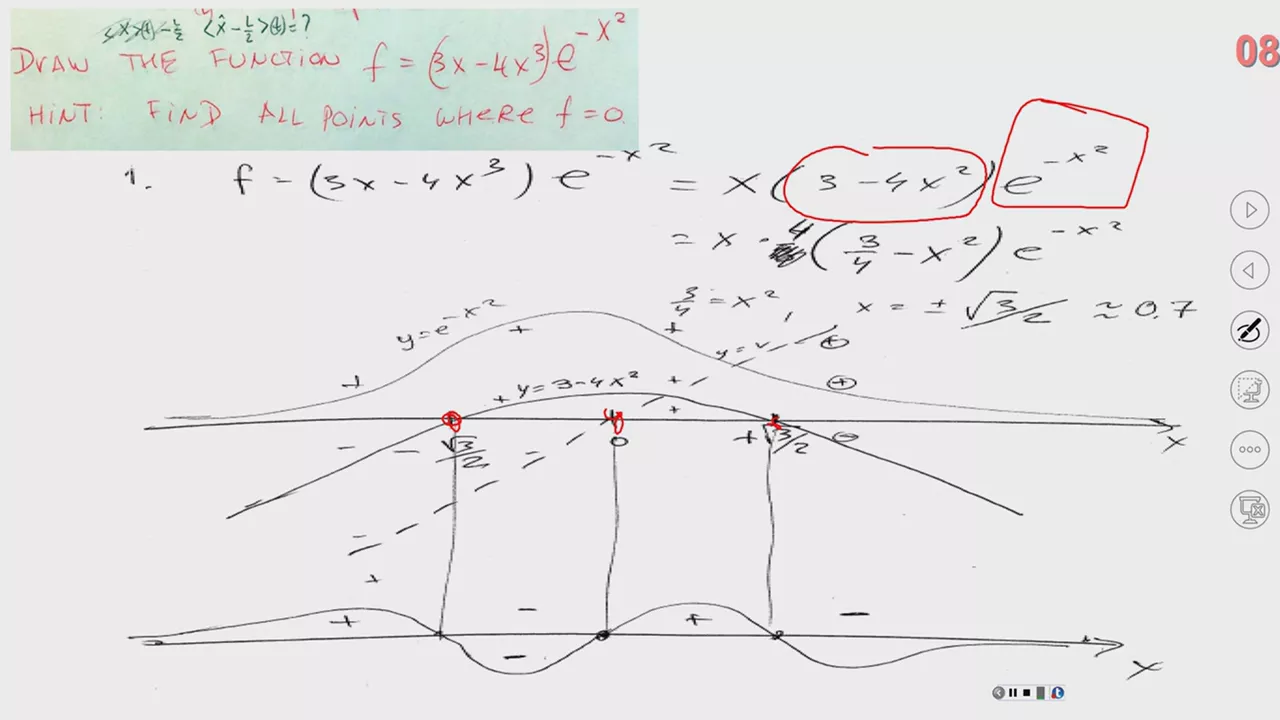 <x>(t) - L/2 <x̂ - L/2>(t) = ?
DRAW THE FUNCTION f = (3x - 4x³)e^-x²
HINT: FIND ALL POINTS WHERE f = 0.
08
1. f = (3x - 4x³) e^-x² = x(3 - 4x²) e^-x²
= x · 4(3/4 - x²) e^-x²
3/4 = x², x = ± √3/2 ≈ 0.7
y = e^-x² + + y = x +
+ + y = 3 - 4x² + + +
x
- - √3/2 - 0 + √3/2 -
-
+
+ - + -
-
x